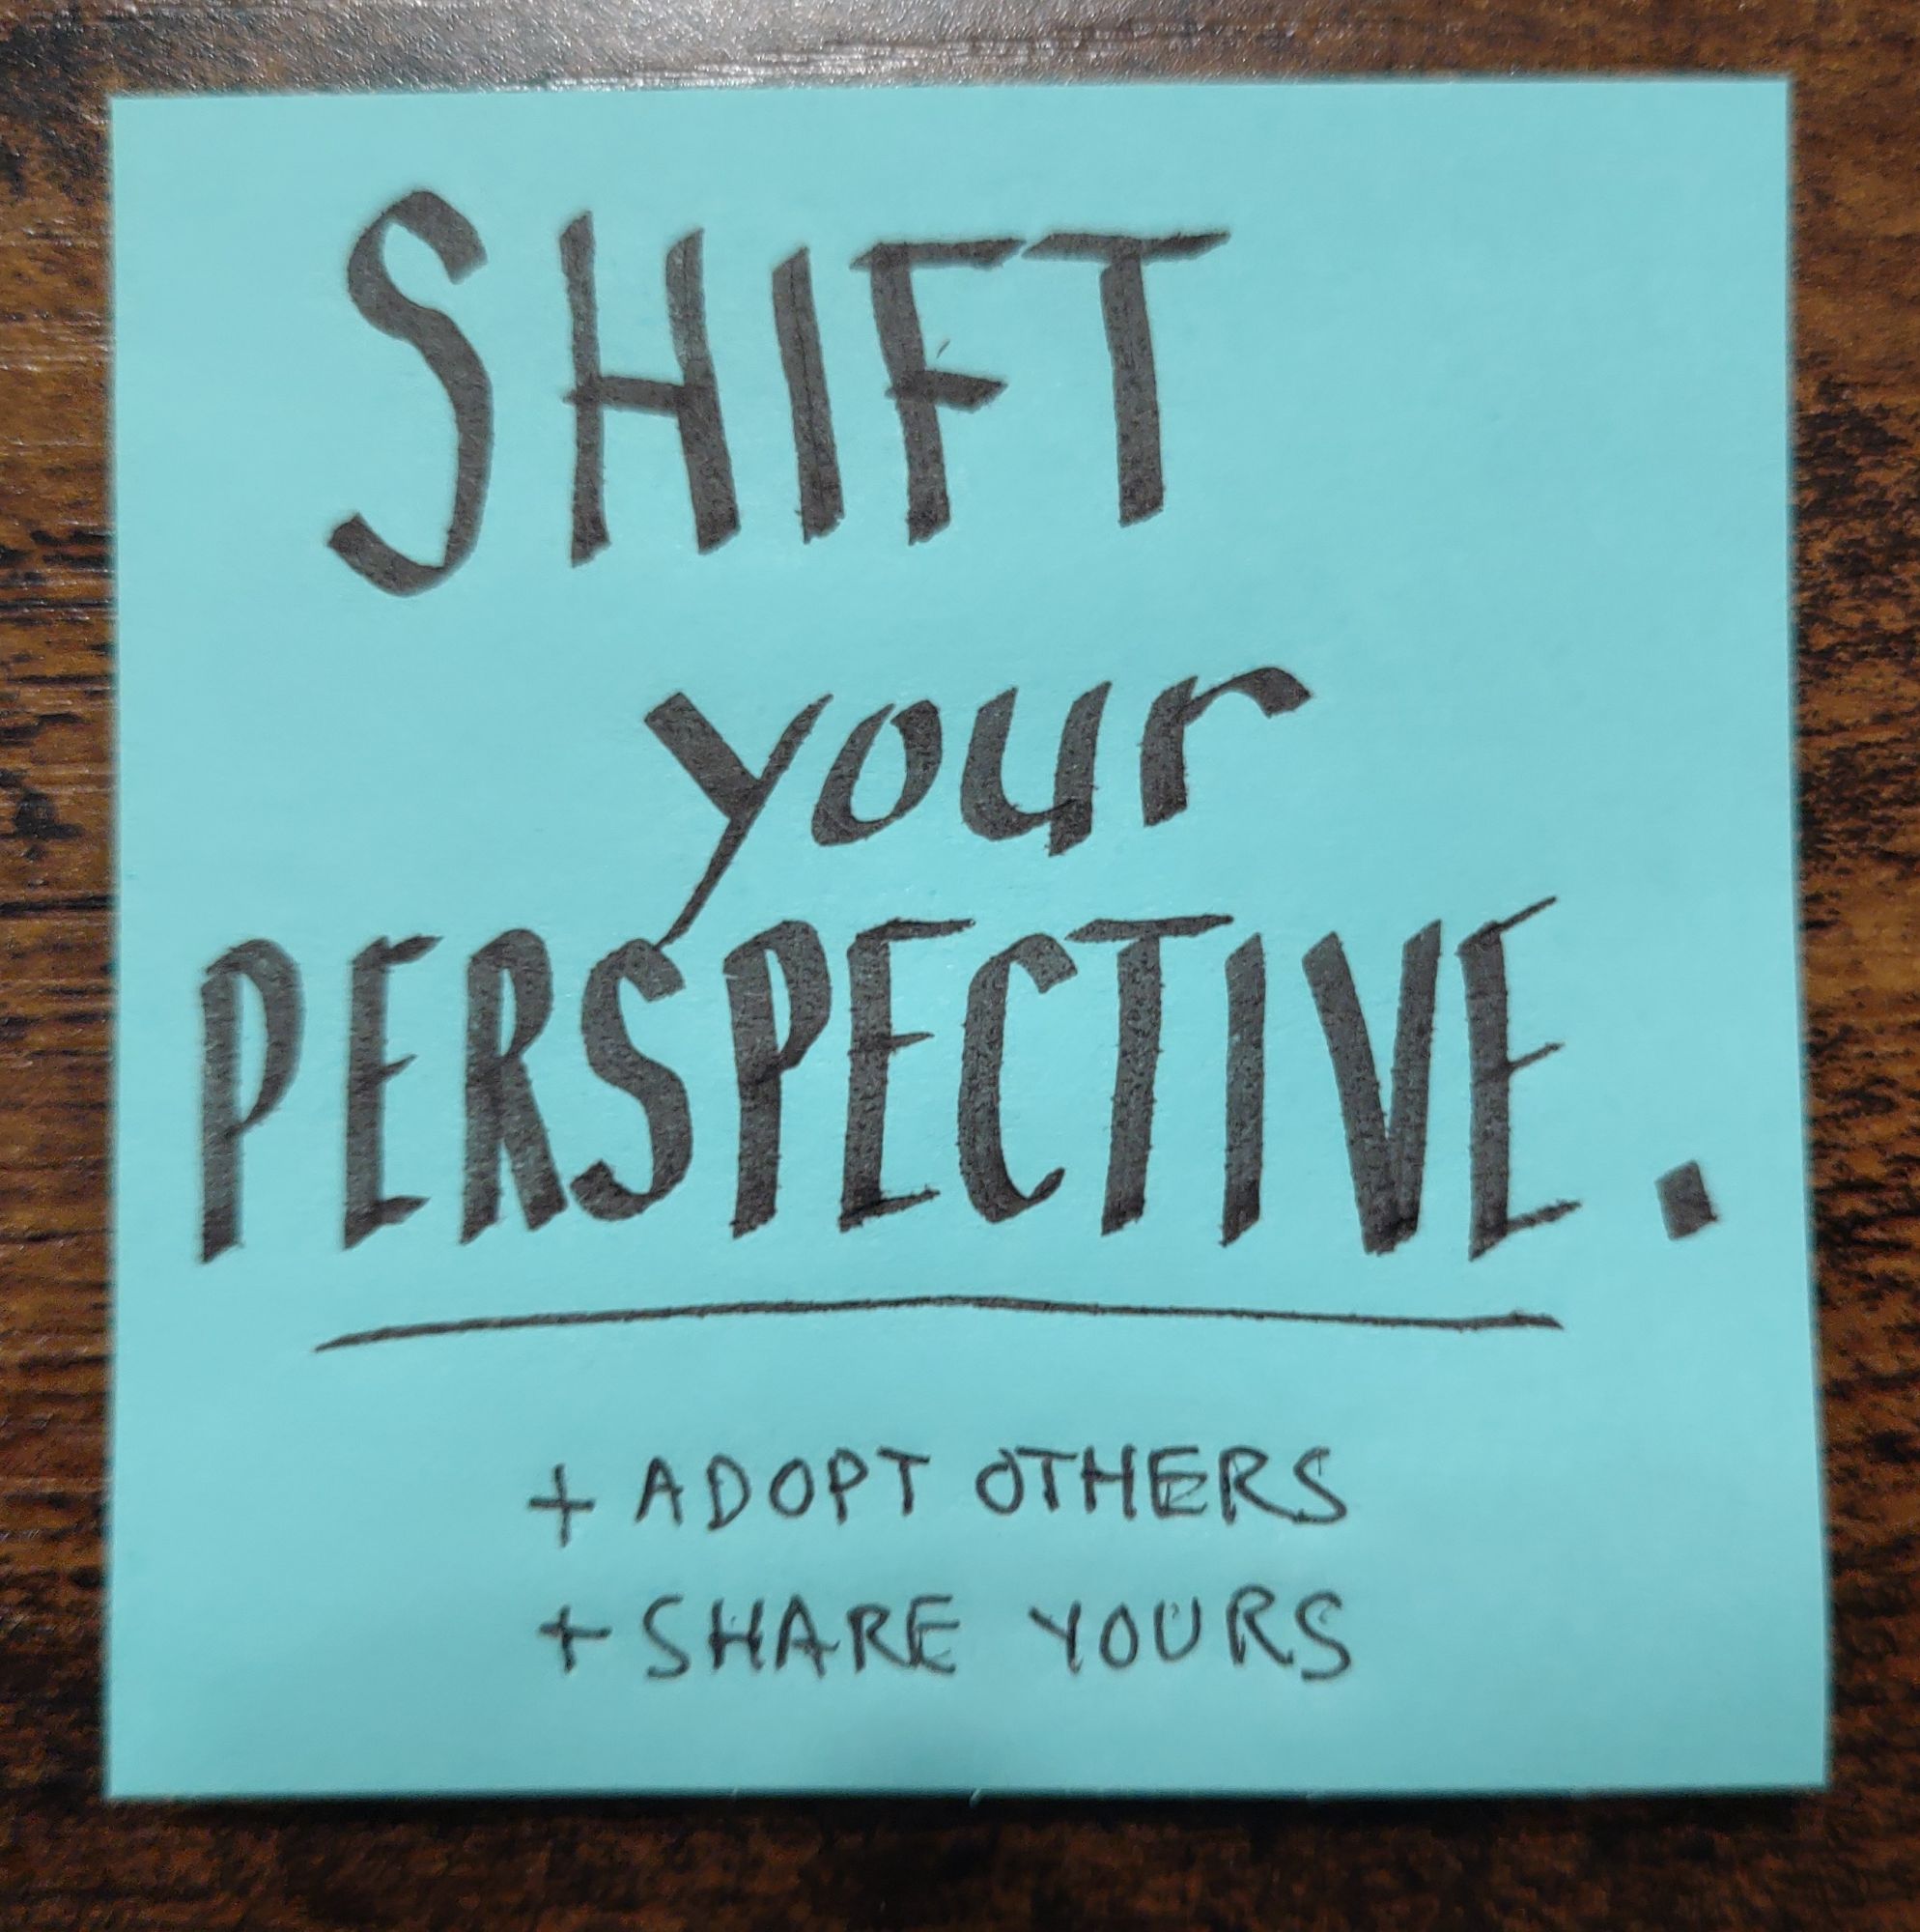 SHIFT
your
PERSPECTIVE.
+ ADOPT OTHERS
+ SHARE YOURS